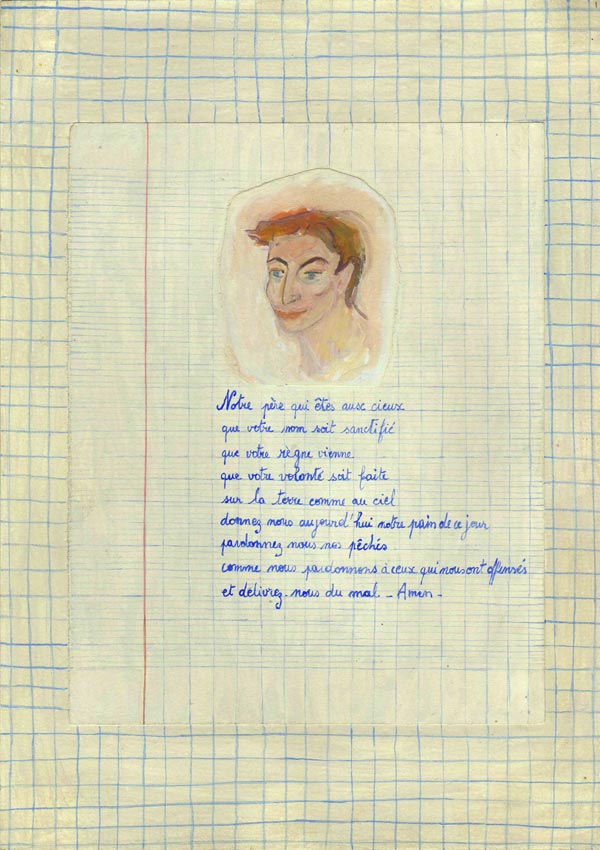 Notre père qui êtes aux cieux
que votre nom soit sanctifié
que votre règne vienne
que votre volonté soit faite
sur la terre comme au ciel
donnez nous aujourd'hui notre pain de ce jour
pardonnez nous nos pêchés
comme nous pardonnons à ceux qui nous ont offensés
et délivrez-nous du mal - Amen -